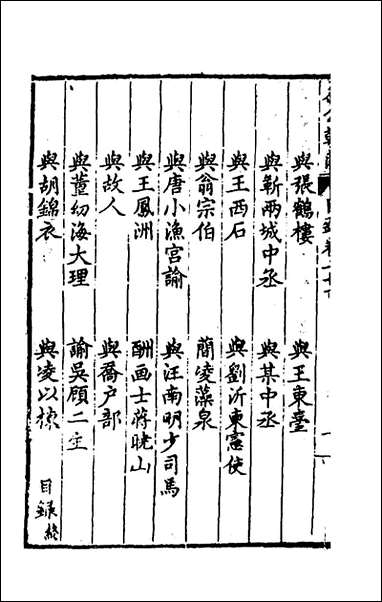 與張鶴樓　與王東臺
與靳兩城中丞　與某中丞
與王西石　與劉沂東憲使
與翁宗伯　簡凌藻泉
與唐小漁宮諭　與汪南明少司馬
與王鳳洲　酬画士蔣曉山
與故人　與喬户部
與董幼海大理　諭吳顾二生
與胡錦衣　與凌以栋
目録終